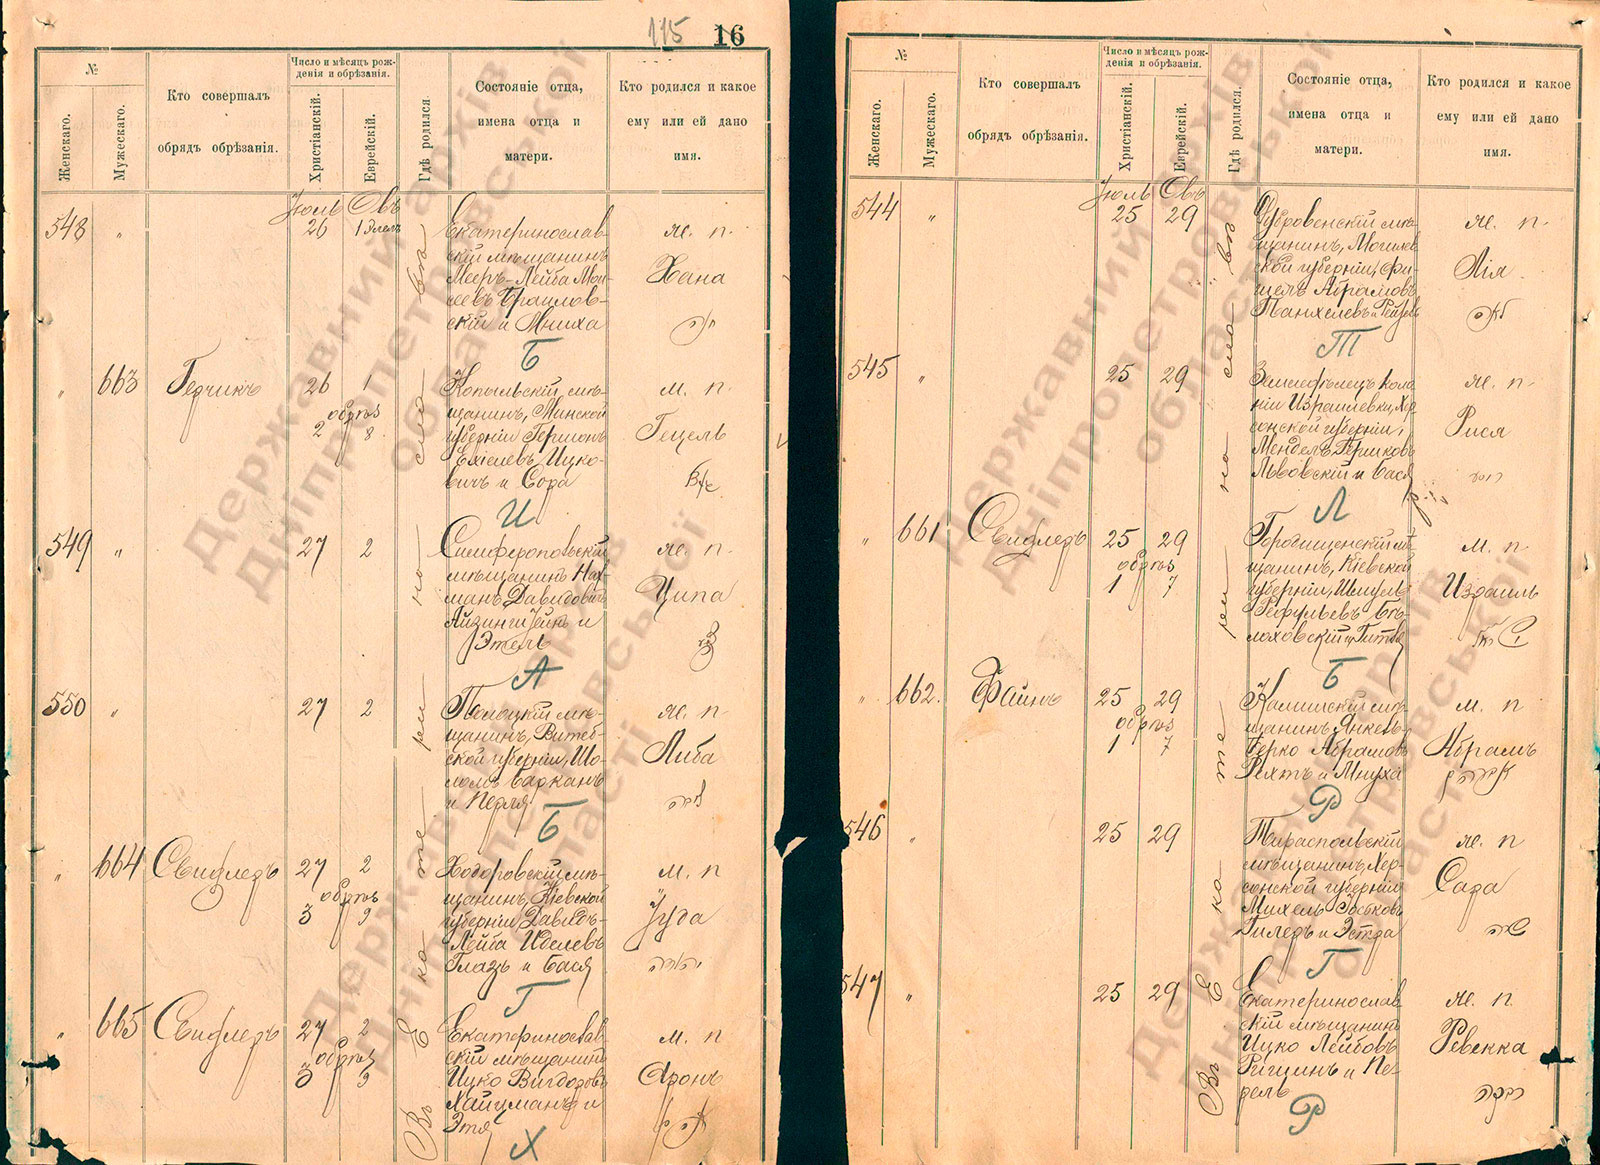 115 16
№
Женскаго.
Мужескаго.
Кто совершалъ
обрядъ обрѣзанія.
Число и мѣсяцъ рож-
денія и обрѣзанія.
Христіанскій.
Еврейскій.
Гдѣ родился.
Состояніе отца,
имена отца и
матери.
Кто родился и какое
ему или ей дано
имя.
Іюль Овъ
548 " 26 1 Элелъ
Екатеринослав-
скій мѣщанинъ
Мееръ-Лейба Мои-
сеевъ Браилов-
скій и Мниха
ж. п.
Хана
Б
" 663 Герчикъ 26 1
обрѣз
2 8
Копыльскій мѣ-
щанинъ, Минской
губерніи Гершонъ
Ехіелевъ Ицко-
вичъ и Сора
м. п.
Гецель
И
549 " 27 2
Симферопольскій
мѣщанинъ Нах-
манъ Давидовъ
Айзинштейнъ и
Этель
ж. п.
Ципа
А
550 " 27 2
Полоцкій мѣ-
щанинъ, Витеб-
ской губерніи, Шо-
ломъ Барканъ
и Перля
ж. п.
Либа
Б
" 664 Свифлеръ 27 2
обрѣз
3 9
Ходоровскій мѣ-
щанинъ, Кіевской
губерніи Давидъ-
Лейба Иделевъ
Глазъ и Бася
м. п.
Іуда
Г
" 665 Свифлеръ 27 2
обрѣз
3 9
Екатеринослав-
скій мѣщанинъ
Ицко Вигдоровъ
Хайцманъ и
Этя
м. п.
Аронъ
Х
Въ Екатеринославѣ
№
Женскаго.
Мужескаго.
Кто совершалъ
обрядъ обрѣзанія.
Число и мѣсяцъ рож-
денія и обрѣзанія.
Христіанскій.
Еврейскій.
Гдѣ родился.
Состояніе отца,
имена отца и
матери.
Кто родился и какое
ему или ей дано
имя.
Іюль Овъ
544 " 25 29
Дубровенскій мѣ-
щанинъ, Могилев-
ской губерніи, Фи-
шель Абрамовъ
ж. п.
Лія
Т
545 25 29
Земледѣлецъ коло-
ніи Израилевки, Хер-
сонской губерніи,
Мендель Гершковъ
Львовскій и Бася
ж. п.
Рися
Л
" 661 Свифлеръ 25 29
обрѣз
1 7
Городищенскій мѣ-
щанинъ, Кіевской
губерніи, Шмуль
м. п.
Израиль
Б
" 662. Файнъ 25 29
обрѣз
1 7
Калишскій мѣ-
щанинъ Янкель-
Берко Абрамовъ
Рехтъ и Мнуха
м. п.
Абрамъ
אברהם
Р
546 " 25 29
Тираспольскій
мѣщанинъ, Хер-
сонской губерніи
Михель Іоськовъ
Гилеръ и Эстра
ж. п.
Сара
שרה
Г
547 " 25 29
Екатеринослав-
скій мѣщанинъ
Ицко Лейбовъ
Ригцинъ и Пе-
рель
ж. п.
Ревекка
רבקה
Р
Въ Екатеринославѣ
Державний архів
Дніпропетровської
області